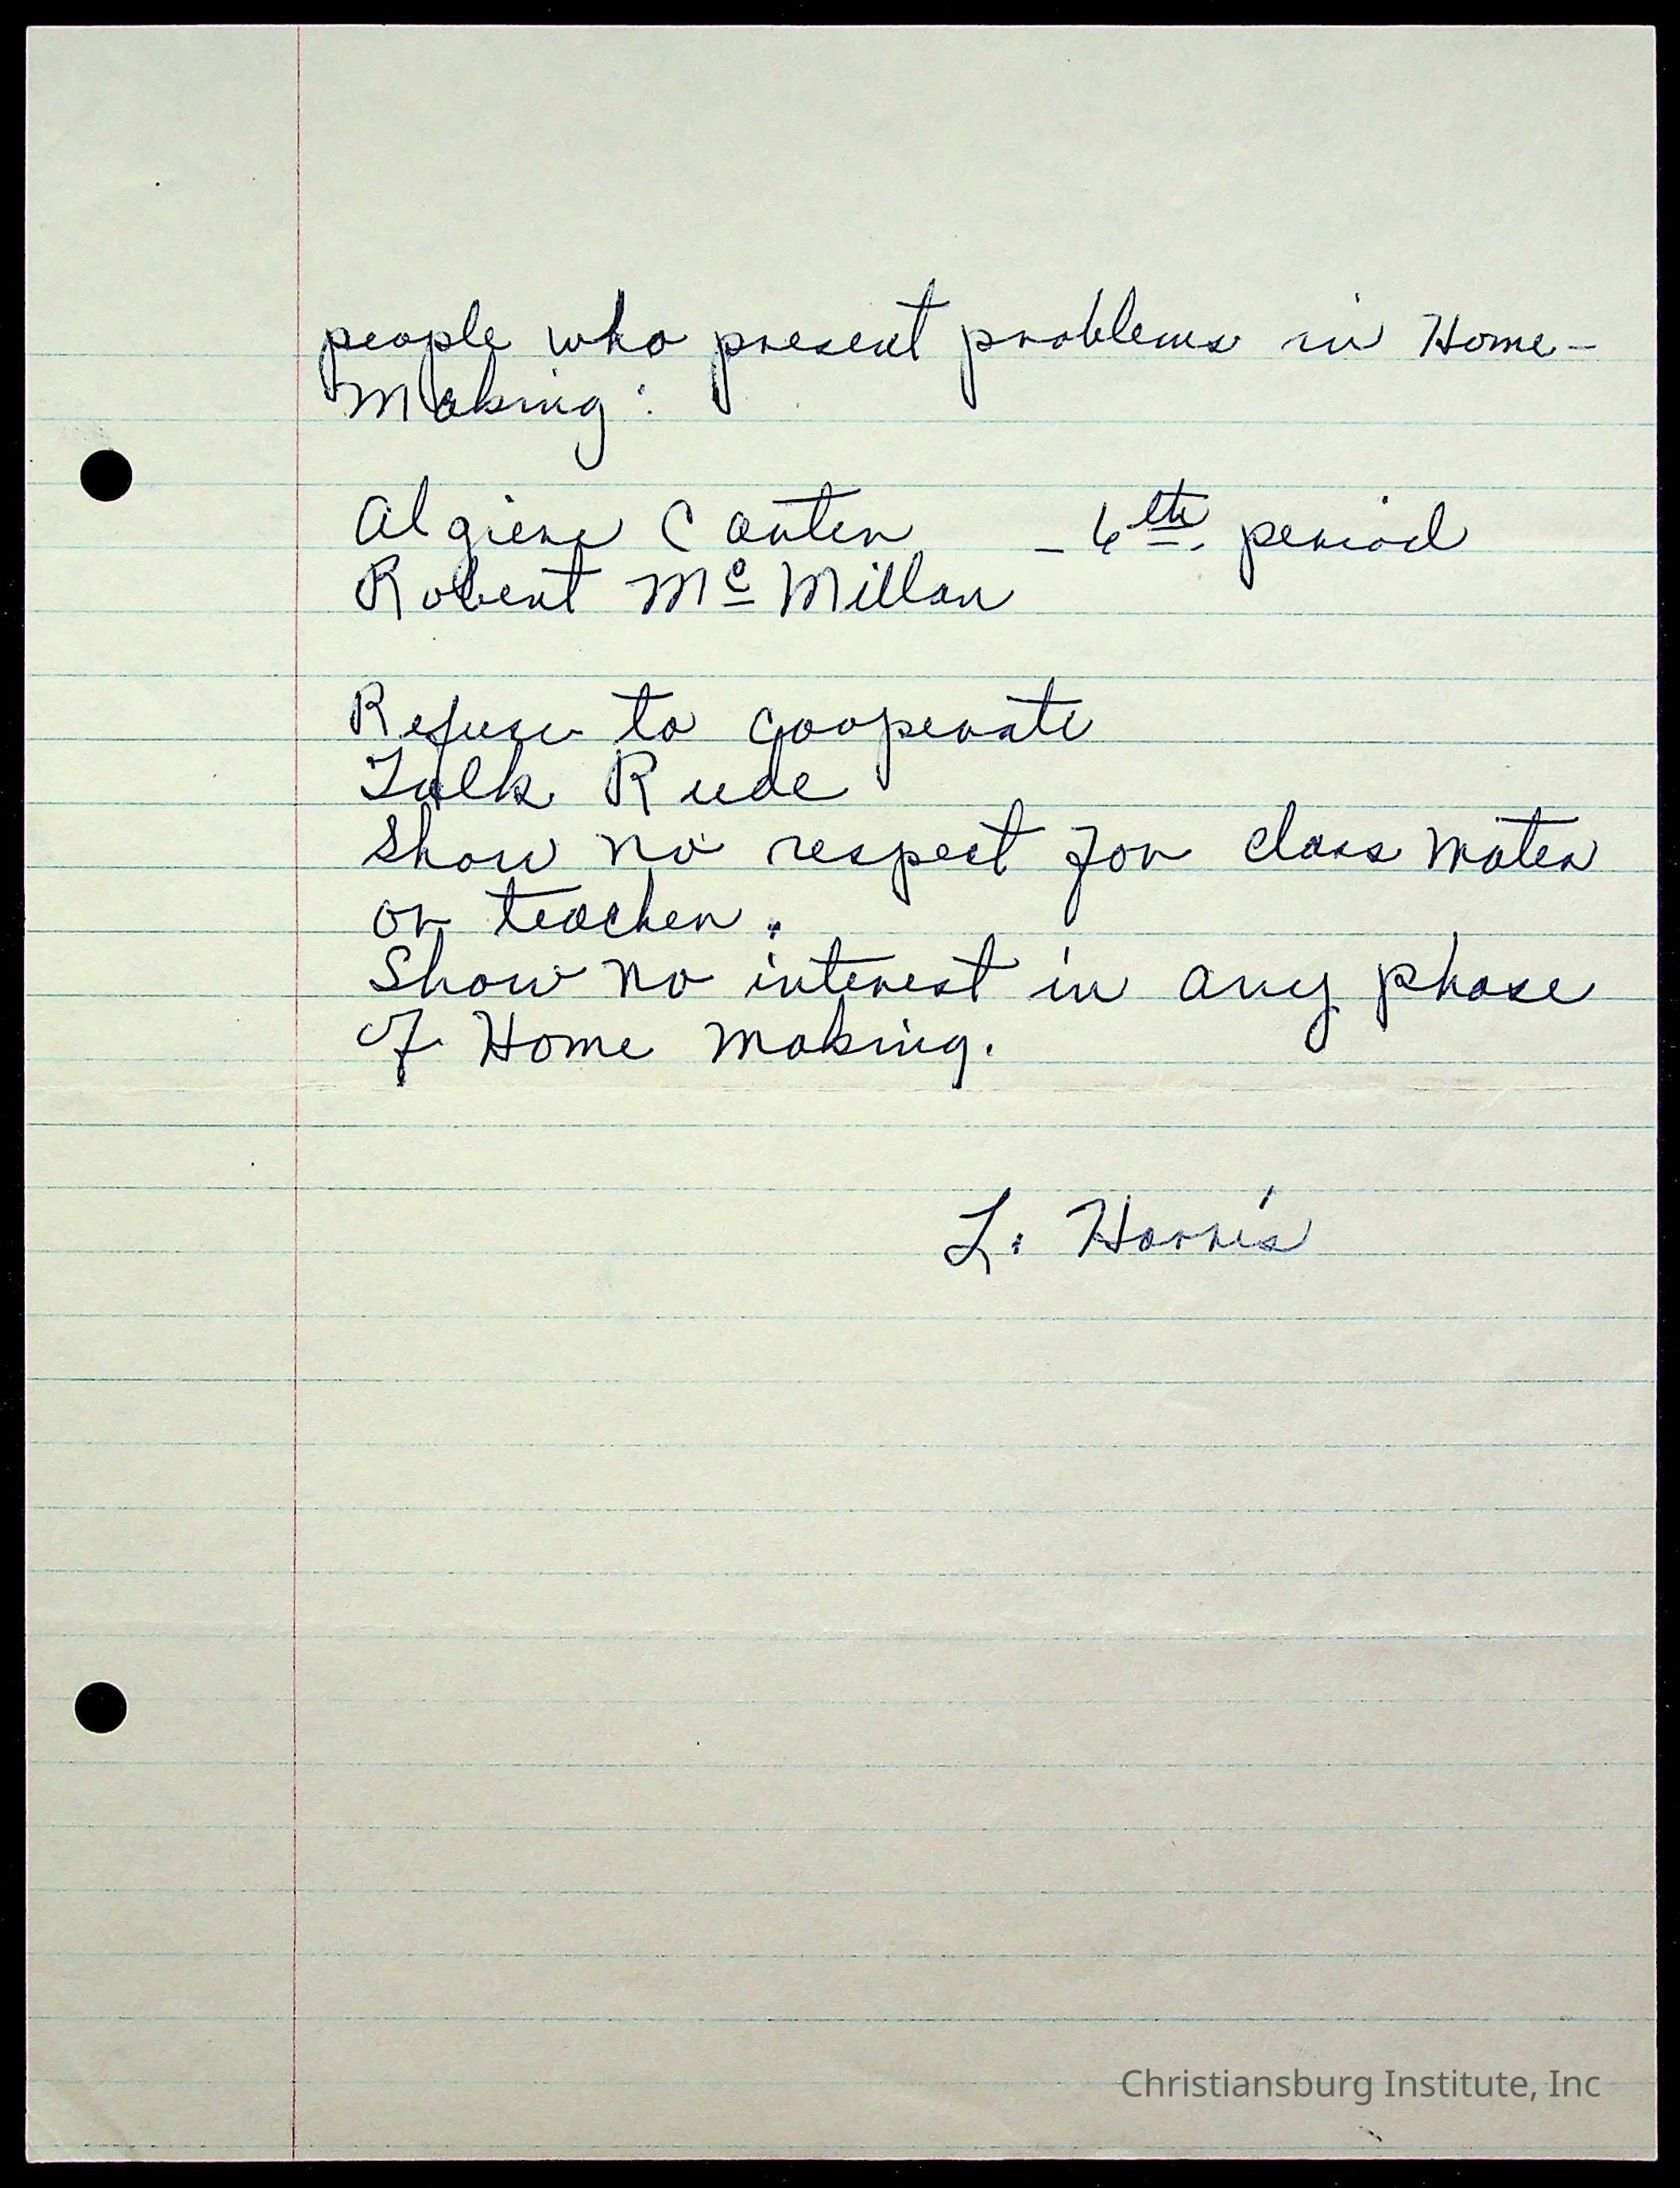 people who present problems in Home-
Making:
Algiene Carter - 6th. period
Robert Mc Millan
Refuse to cooperate
Talk Rude
Show no respect for class mates
or teacher.
Show no interest in any phase
of Home making.
L. Harris
Christiansburg Institute, Inc